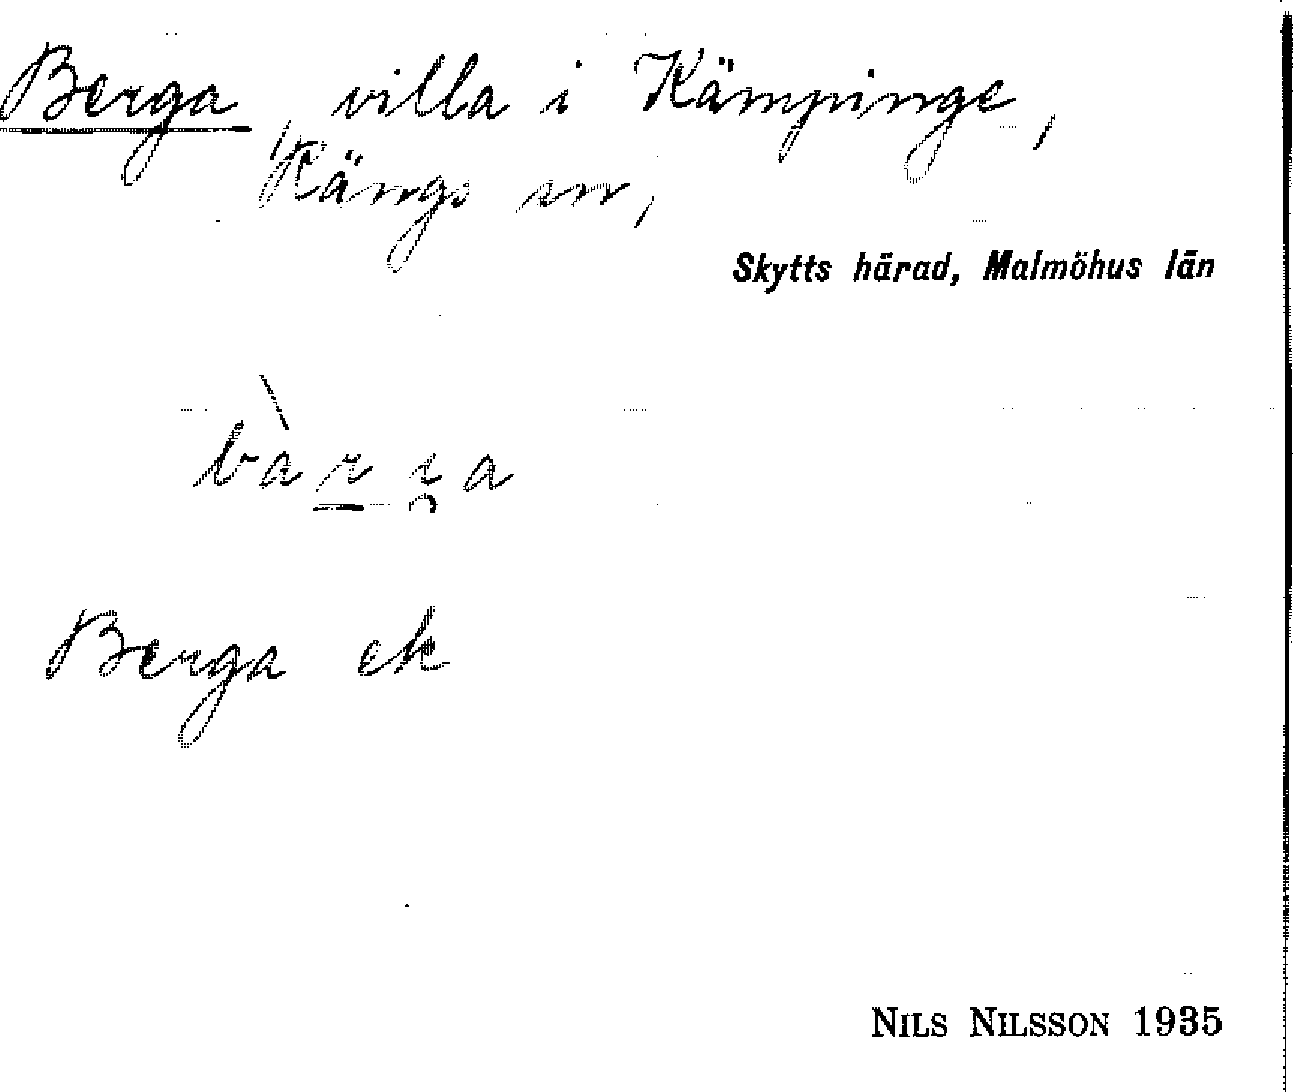 Berga, villa i Kämpinge,
Rängs sn,
Skytts härad, Malmöhus län
bàr̲i̯a
Berga ek
NILS NILSSON 1935